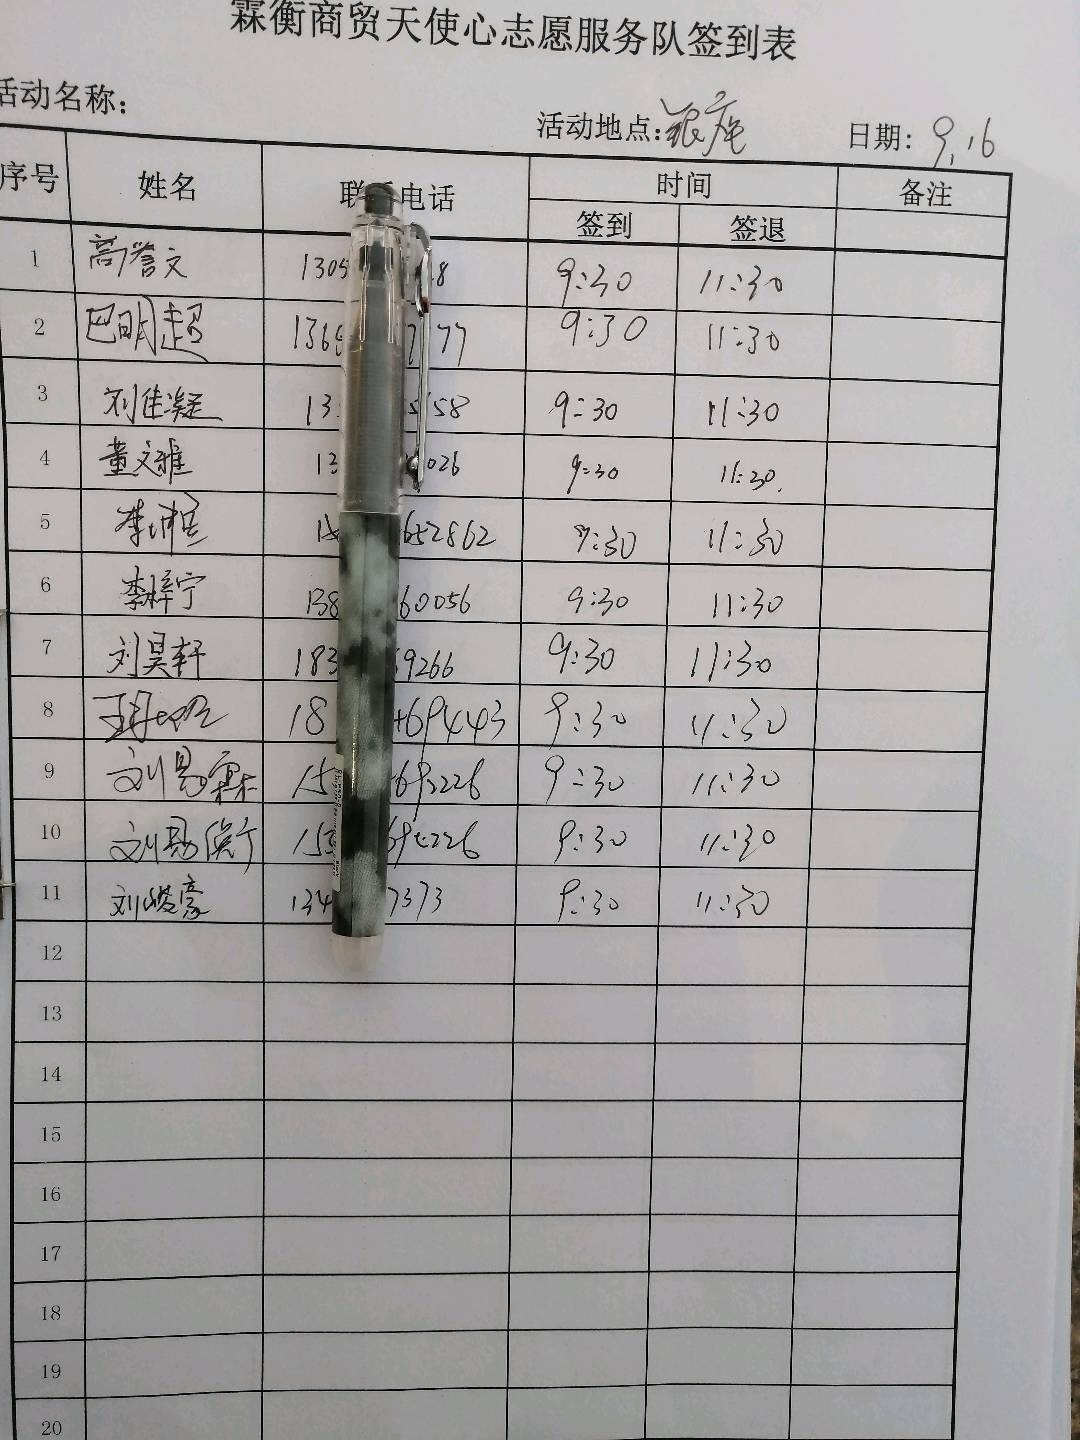 霖衡商贸天使心志愿服务队签到表
活动名称： 活动地点：银座 日期：9.16
序号 姓名 联 电话 时间 备注
签到 签退
1 高誉文 1305 8 9:30 11:30
2 巴明超 136 77 9:30 11:30
3 刘佳凝 13 58 9:30 11:30
4 董文雅 13 026 9:30 11:30
5 李 652862 9:30 11:30
6 李梓宁 138 60056 9:30 11:30
7 刘昊轩 183 9266 9:30 11:30
8 18 69443 9:30 11:30
9 刘易霖 15 69226 9:30 11:30
10 刘易衡 15 226 9:30 11:30
11 刘峻豪 134 7373 9:30 11:30
12
13
14
15
16
17
18
19
20